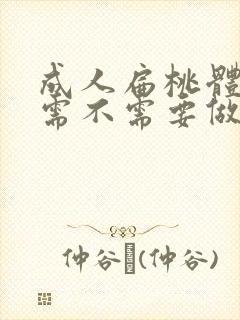 成人扁桃體
需不需要做
仲谷(仲谷)